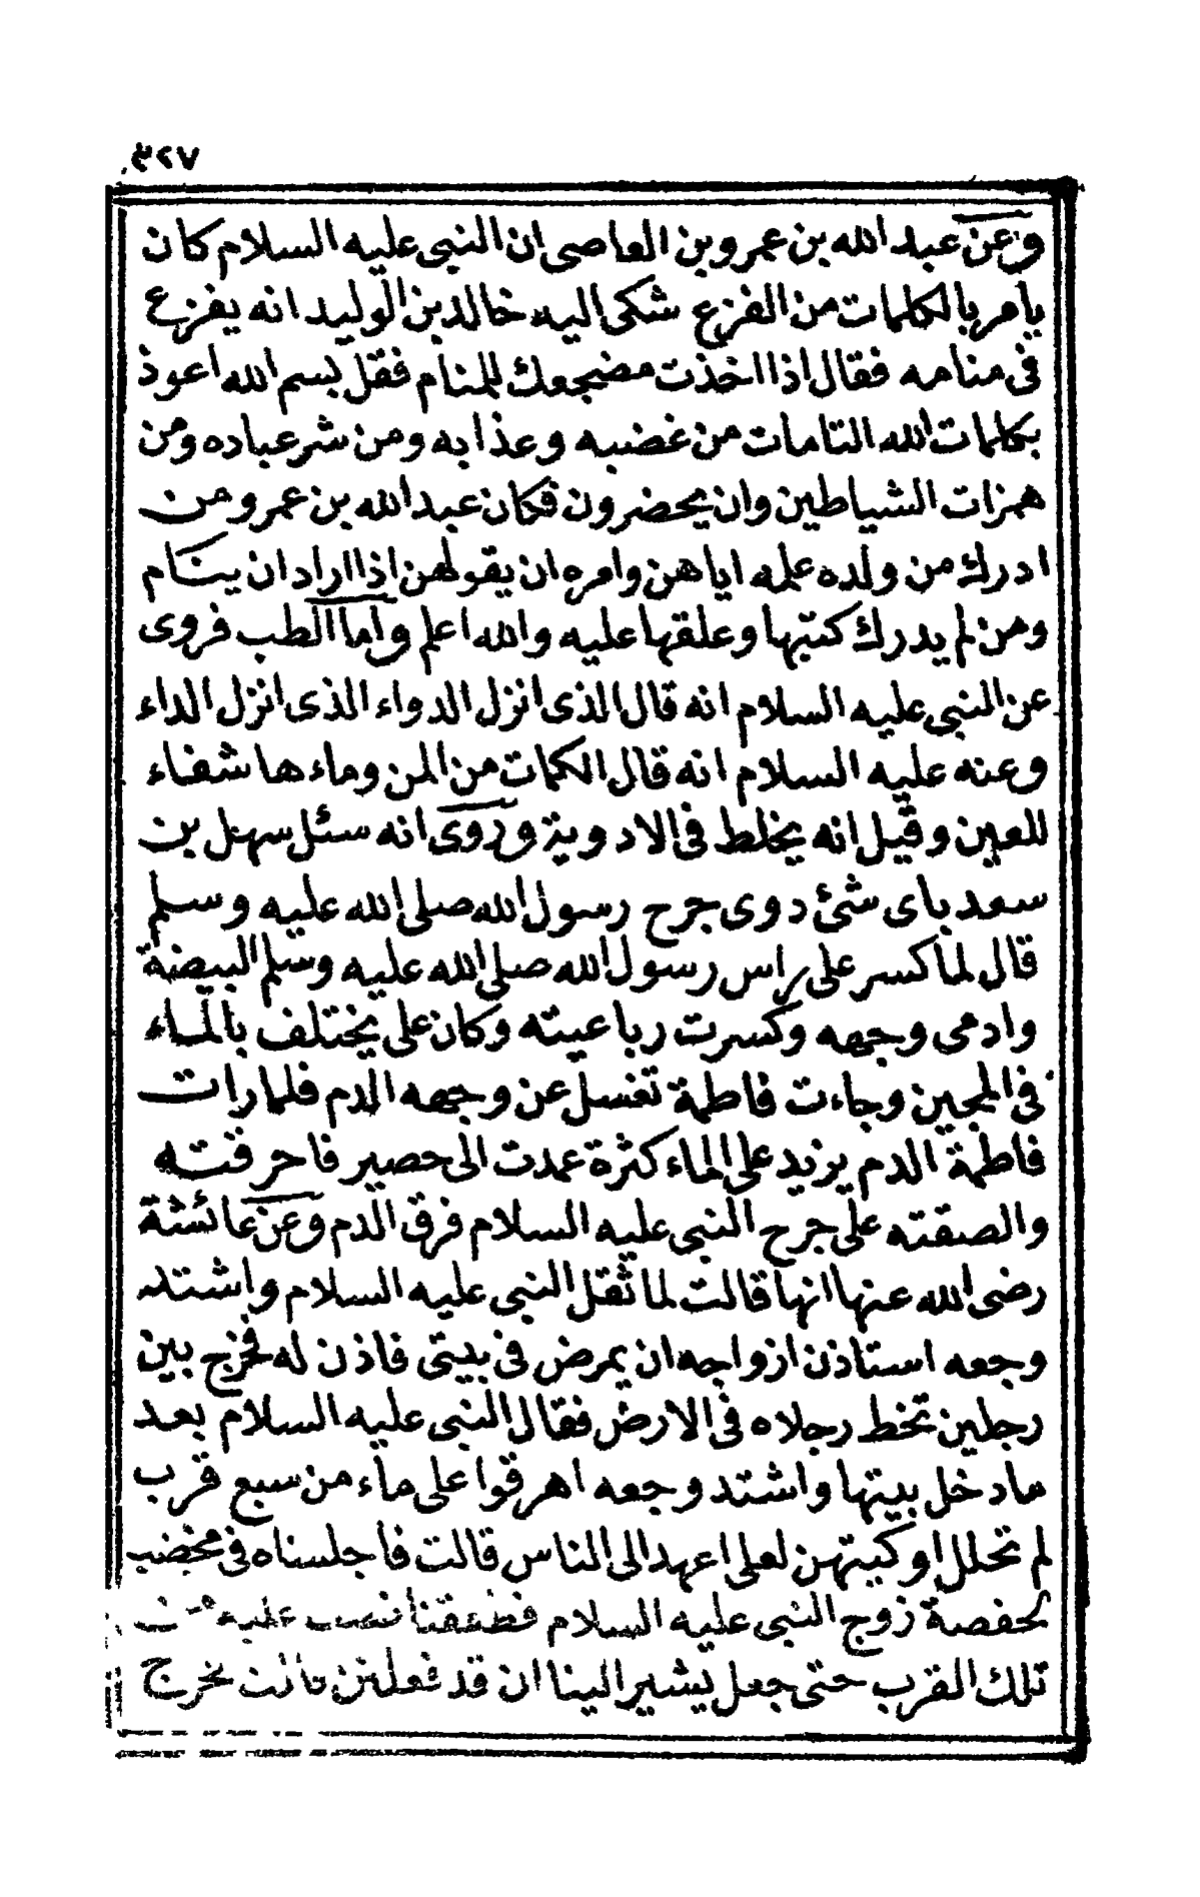 ٣٢٧
وعن عبد الله بن عمرو بن العاصى ان النبى عليه السلام كان
يأمر بالكلمات من الفزع شكى اليه خالد بن الوليد انه يفزع
فى منامه فقال اذا اخذت مضجعك للمنام فقل بسم الله اعوذ
بكلمات الله التامات من غضبه وعذابه ومن شر عباده ومن
همزات الشياطين وان يحضرون فكان عبد الله بن عمرو من
ادرك من ولده علمه اياهن وامره ان يقولهن اذا اراد ان ينام
ومن لم يدرك كتبها وعلقها عليه والله اعلم واما الطب فروى
عن النبى عليه السلام انه قال الذى انزل الدواء الذى انزل الداء
وعنه عليه السلام انه قال الكمات من المن وماءها شفاء
للعين وقيل انه يخلط فى الادوية وروى انه سئل سهل بن
سعد باى شئ دوى جرح رسول الله صلى الله عليه وسلم
قال لما كسر على راس رسول الله صلى الله عليه وسلم البيضة
وادمى وجهه وكسرت رباعيته وكان على يختلف بالماء
فى المجين وجاءت فاطمة تغسل عن وجهه الدم فلما رات
فاطمة الدم يزيد على الماء كثرة عمدت الى حصير فاحرقته
والصقته على جرح النبى عليه السلام فرق الدم وعن عائشة
رضى الله عنها انها قالت لما ثقل النبى عليه السلام واشتد
وجعه استاذن ازواجه ان يمرض فى بيتى فاذن له فخرج بين
رجلين تخط رجلاه فى الارض فقال النبى عليه السلام بعد
مادخل بيتها واشتد وجعه اهرقوا على ماء من سبع قرب
لم تحلل اوكيتهن لعلى اعهد الى الناس قالت فاجلسناه فى مخضب
لحفصة زوج النبى عليه السلام فطفقنا نصب عليه من
تلك القرب حتى جعل يشير الينا ان قد فعلتن قالت فخرج